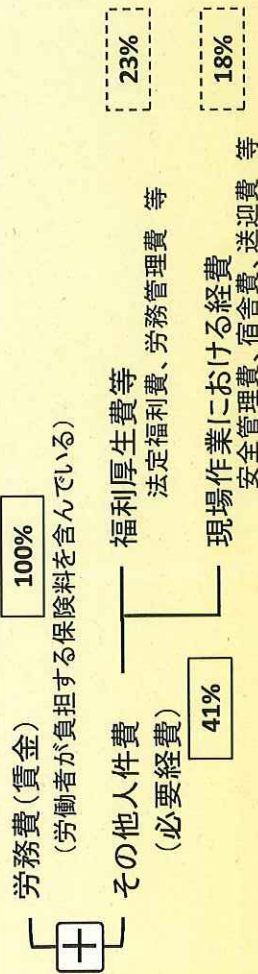 労務費(賃金)
100%
(労働者が負担する保険料を含んでいる)
+
その他人件費
(必要経費)
41%
福利厚生費等
23%
法定福利費、労務管理費 等
現場作業における経費
18%
安全管理費、宿舎費、送迎費 等